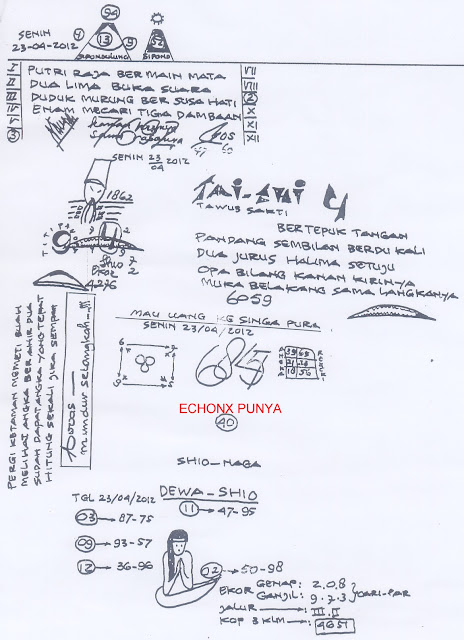 94
SENIN
23-04-2012
4 13 9
52
SIPONGGLUNG
SIPONO
I PUTRI RAJA BERMAIN MATA VII
II DUA LIMA BUKA SUARA VIII
III DUDUK MURUNG BER SUSA HATI
IV ENAM MECARI TIGA DAMBAAN X
V XI
XII
SENIN 23/04 2012
1862
TAI-SUI 4
TAWUS SAKTI
BERTEPUK TANGAN
PANDANG SEMBILAN BERDU KALI
DUA JURUS HALIMA SETUJU
OPA BILANG KANAN KIRINYA
MUKA BELAKANG SAMA LANGKANYA
6059
SHIO 7
EKOR 2
4276
MAU UANG KE SINGA PURA
SENIN 23/04/2012
6845
mundur selangkah
PERGI KETAMAN MEMETI BUAH
MELIHAT ANGKA BERAHIR DUA
SUDAH DAPAT ANGKA YANG TEPAT
HITUNG SEKALI JIKA SEMPAT
ECHONX PUNYA
40
SHIO-NAGA
TGL 23/04/2012 DEWA-SHIO
03 → 87-75
11 → 47-95
09 → 93-57
12 → 36-96
02 → 50-98
EKOR GENAP: 2,0,8
GANJIL: 9.7.3
JALUR → III.II
KOP 3 KLM → 4651